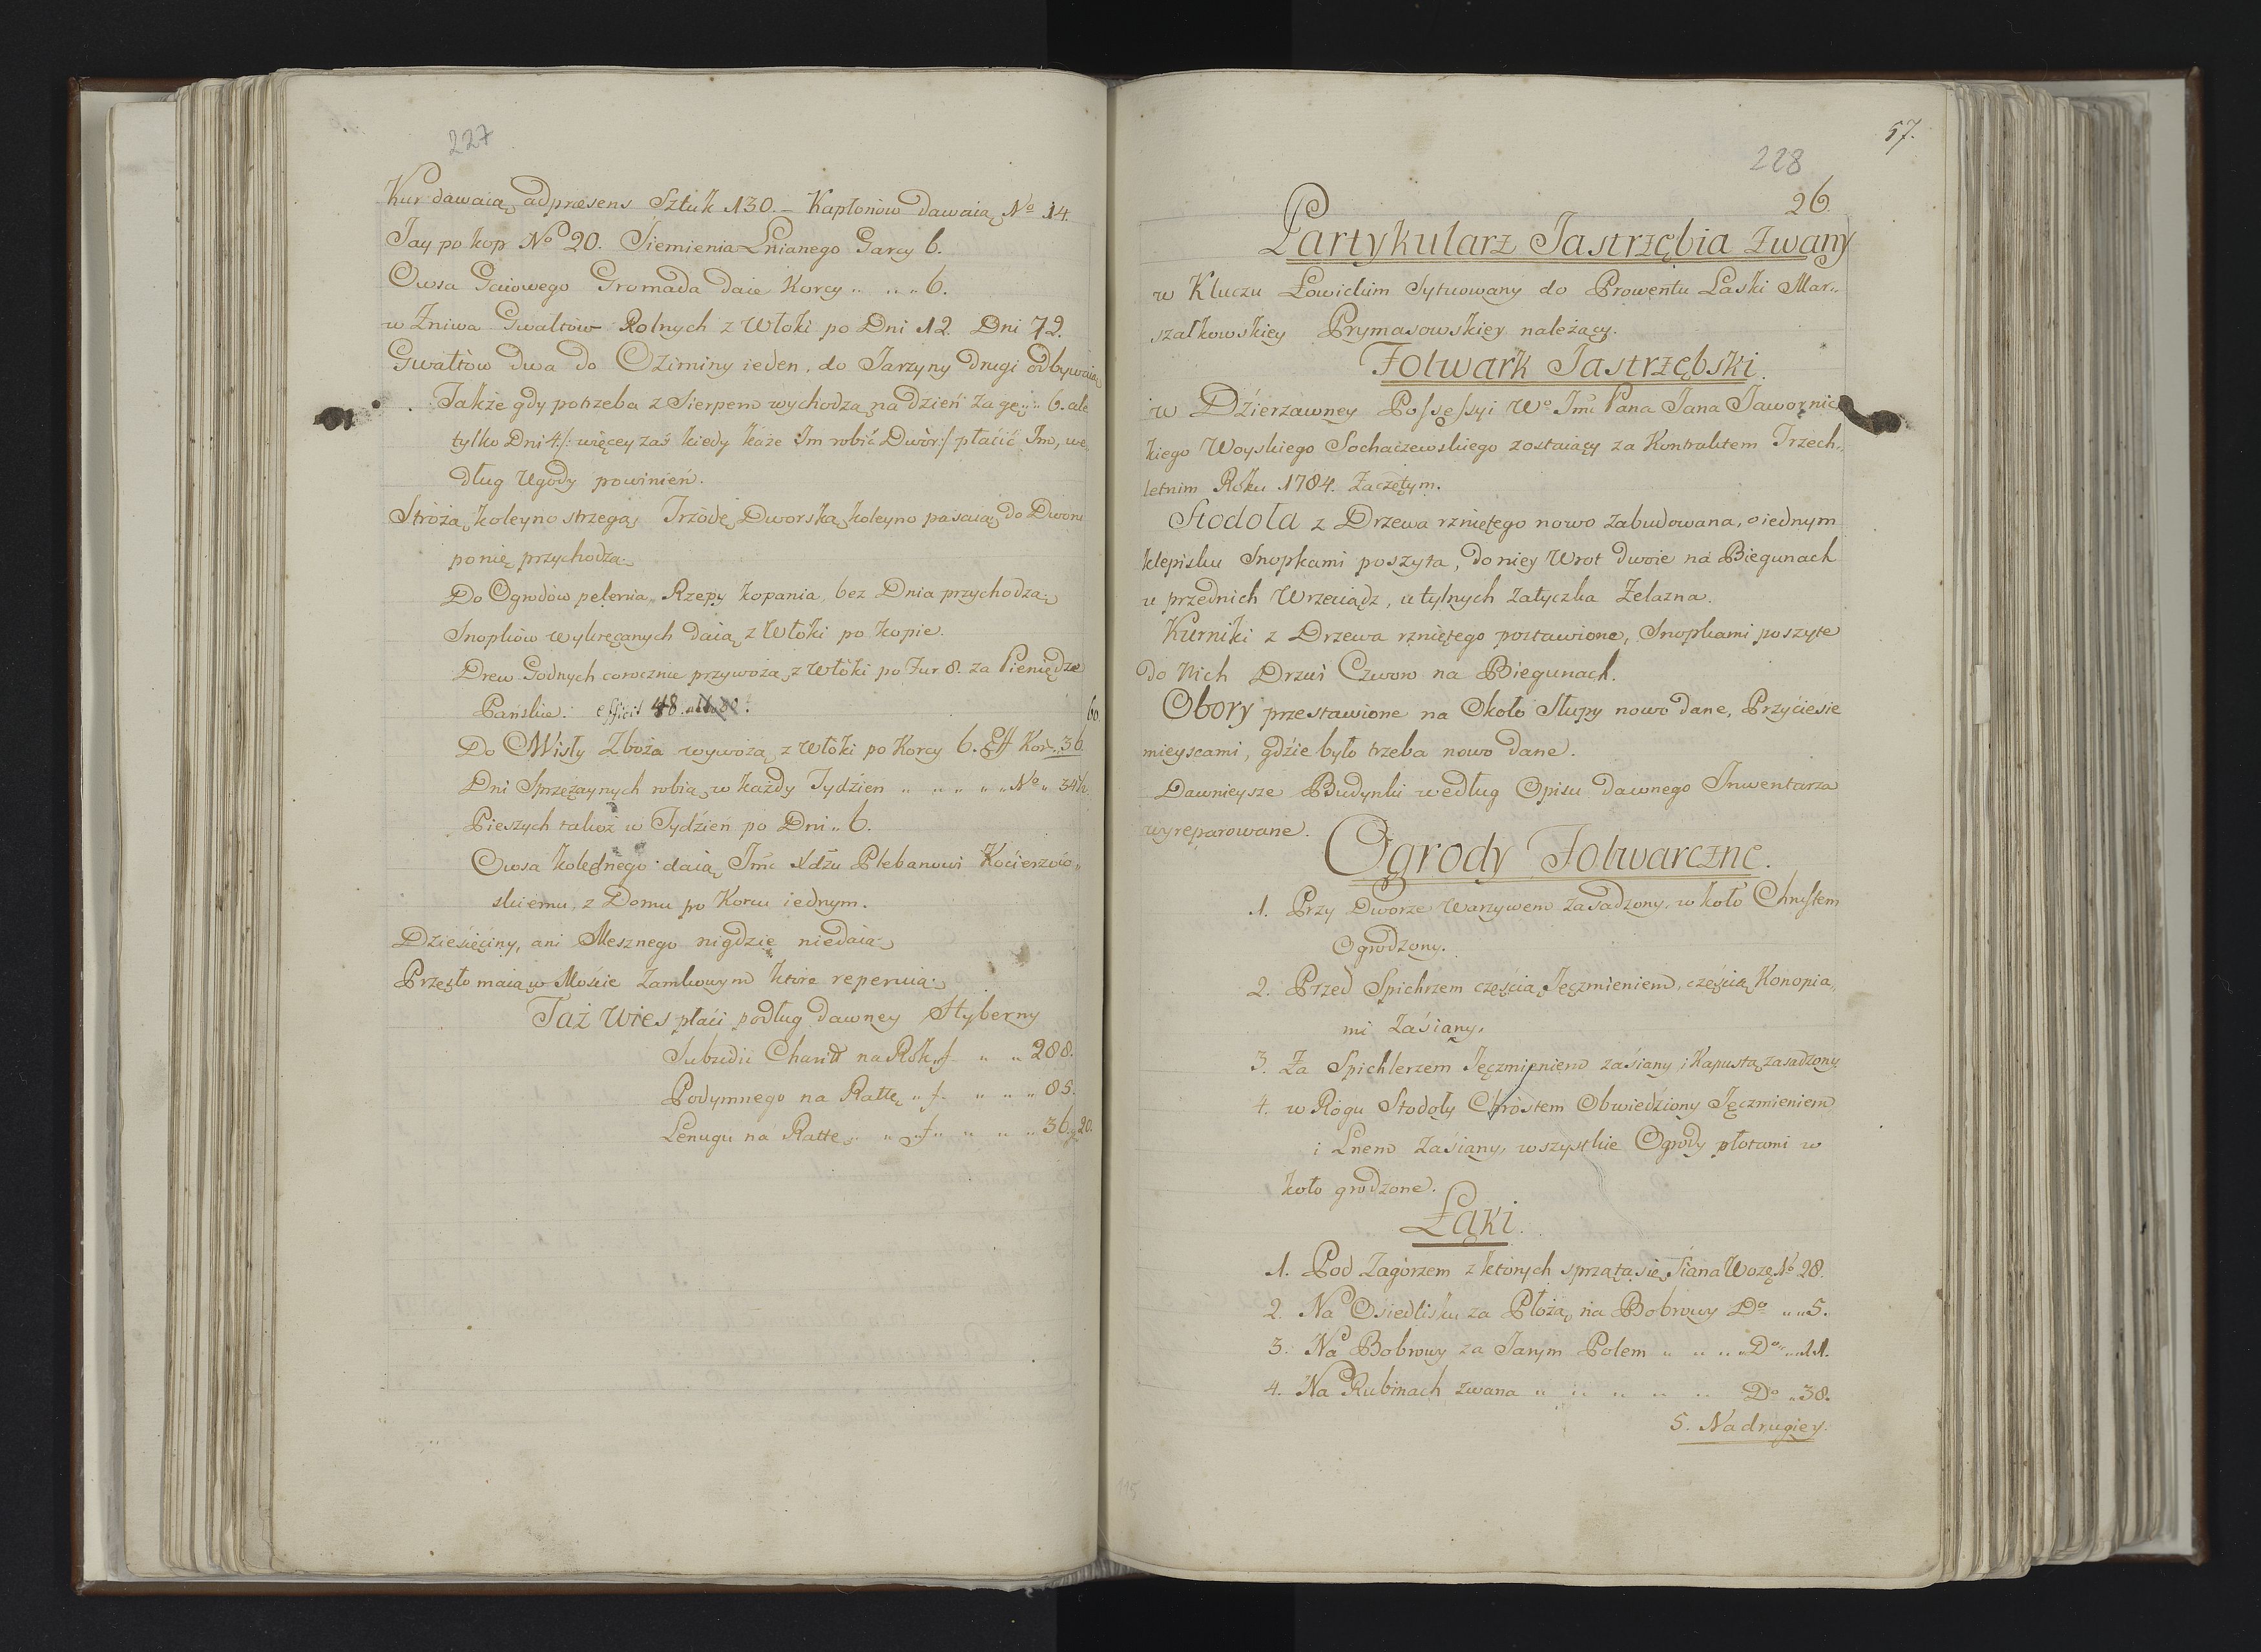 227
Kur dawaią adpræsens Sztuk 130. – Kapłonòw dawaią No 14.
Jay po kop No 20. Siemienia Lnianego Garcy 6.
Owsa Gaiowego Gromada daie Korcy „ „ „ 6.
w Żniwa Gwałtòw Rolnych z Włoki po Dni 12. Dni 72.
Gwałtòw dwa do Oziminy ieden, do Jarzyny drugi odbywaią
Także gdy potrzeba z Sierpem wychodzą na dzień za gr „ 6. ale
tylko Dni 4 /: więcey zaś kiedy każe Im robić Dwòr :/ płacić Im, we„
dług Ugody powinień.
Stròżą koleyno strzegą, Trzòdę Dworską koleyno pasaią, do Dworu
ponię przychodzą.
Do Ogrodòw pelenia, Rzepy kopania, bez Dnia przychodzą.
Snopkòw wykręcanych daią z Włoki po kopie.
Drew Godnych corocznie przywożą z Włòki po Fur 8. za Pieniędze
Pańskie. efficit 48.
60.
Do Wisły Zboża wywożą z Włòki po Korcy 6. Eff Kor. 36.
Dni Sprzężaynych robią w każdy Tydzień „ „ „ „ „ No „ 34½
Pieszych takoż w Tydźień po Dni „ 6.
Owsa kolędnego daią Imć Xdzu Plebanowi Kocierzew„
skiemu, z Domu po Korcu iednym.
Dzieśięciny, ani Mesznego nigdzie niedaią.
Przęsło maią w Mośćie Zamkowym ktòre reperuią.
Taż Wieś płaći podług dawney Hyberny
Subsidii Charit na Rok „ f „ „ 288.
Podymnego na Rattę „ f „ „ „ 85.
Lenugu na Rattę „ „ f „ „ „ „ 36. g 20.
57.
228
26
Partykularz Jastrzębia zwany
w Kluczu Łowickim Sytuowany do Prowentu Laski Mar„
szałkowskiey Prymasowskiey należący.
Folwark Jastrzębski.
w Dźierzawney Possessyi Wo Imć Pana Jana Jawornic
kiego Woyskiego Sochaczewskiego zostaiący za Kontraktem Trzech„
letnim Roku 1784. Zaczętym.
Stodoła z Drzewa rzniętego nowo zabudowana, o iednym
klepisku Snopkami poszyta, do niey Wrot dwoie na Biegunach
u przednich Wrzeciądz, u tylnych Zatyczka Żelazna.
Kurniki z Drzewa rzniętego postawione, Snopkami poszyte
do Nich Drzwi Czworo na Biegunach.
Obory przestawione na Około Słupy nowo dane, Przyciesie
mieyscami, gdźie było trzeba nowo dane.
Dawnieysze Budynki według Opisu dawnego Inwentarza
wyreparowane.
Ogrody Folwarczne.
1. Przy Dworze Warzywem zasadzony, w koło Chrustem
Ogrodzony.
2. Przed Spichrzem częścią Jęczmieniem, częścią Konopia„
mi Zaśiany.
3. Za Spichlerzem Jęczmieniem zaśiany i Kapustą zasadzony
4. w Rogu Stodoły Chrostem Obwiedziony Jęczmieniem
i Lnem Zaśiany, wszystkie Ogrody płotami w
koło grodzone.
Łąki.
1. Pod Zagòrzem z ktòrych sprząta się Siana Wozę No 28.
2. Na Osiedlisku za Płożą na Bobrowy Do „ „ 5.
3. Na Bobrowy za Jarym Polem „ „ „ „ Do „ „ 11.
4. Na Rubinach zwana „ „ „ „ „ Do „ 38.
5. Na drugiey.
115